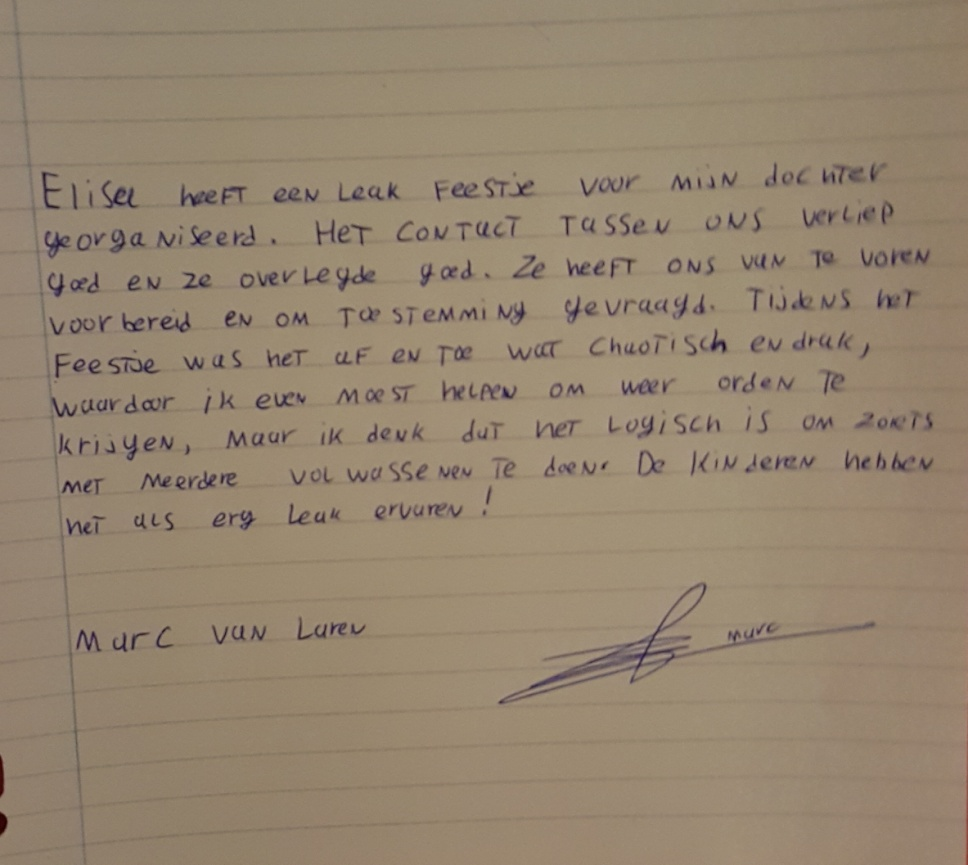 Elisee heeft een leuk feestje voor mijn dochter
georganiseerd. Het contact tussen ons verliep
goed en ze overlegde goed. Ze heeft ons van te voren
voorbereid en om toestemming gevraagd. Tijdens het
feestje was het af en toe wat chaotisch en druk,
waardoor ik even moest helpen om weer orden te
krijgen, maar ik denk dat het logisch is om zoiets
met meerdere volwassenen te doen. De kinderen hebben
het als erg leuk ervaren!
Marc van Laren
Marc